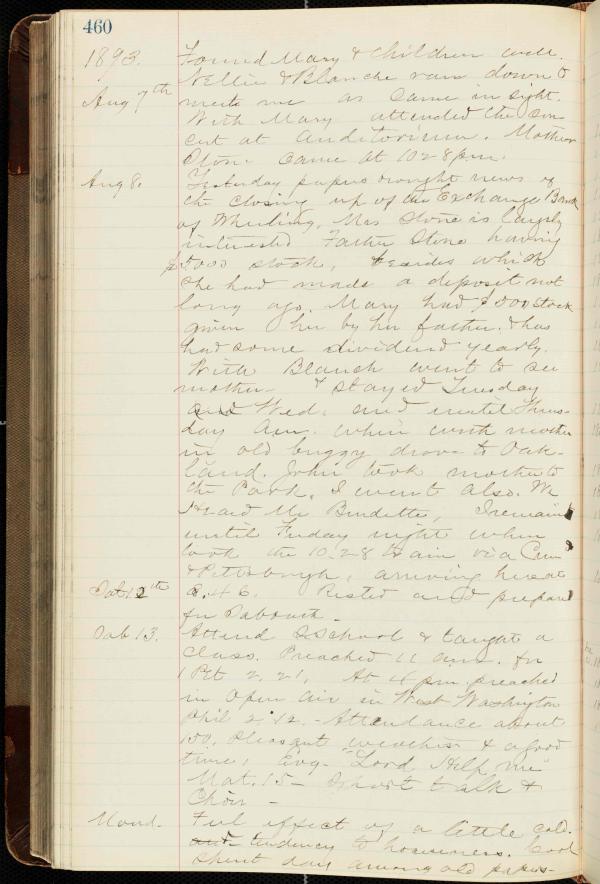 460
1893. Found Mary & Children well.
Nellie & Blanche ran down to
Aug 7th meete me as came in sight.
With Mary attended the Con
cert at Auditorium. Mother
Stone came at 10 28 pm.
Aug 8. Yesterday papers brought news of
the closing up of the Exchange Bank
of Wheeling, Mrs Stone is largely
interested Father Stone having
$5000 stock, besides which
she had made a deposit not
long ago. Mary had $500 stock
given her by her father. & has
had some dividend yearly.
With Blanch went to see
mother & stayed Tuesday
and Wed. and until Thurs-
day Am. when with mother
in old buggy drove to Oak-
land. John took mother to
the Park, I went also. We
Heard Mr Burdette, I remain
until Friday night when
took the 10.28 train via Cum
& Pittsburgh, arriving here at
Sat 12th 8.46. Rested and prepared
for Sabbath.
Sab 13. Attend S School & taught a
Class. Preached 11 am. fr
1 Pet 2.21. At 4 pm preached
in Open air in West Washington
Phil 2.12. - Attendance about
150. Pleasant weather & a good
time, Evg- "Lord Help me"
Mat. 15 - Short talk &
Choir -
Mond. Feel effect of a little cold.
and tendency to hoarseness. Cool
spent day among old papers-